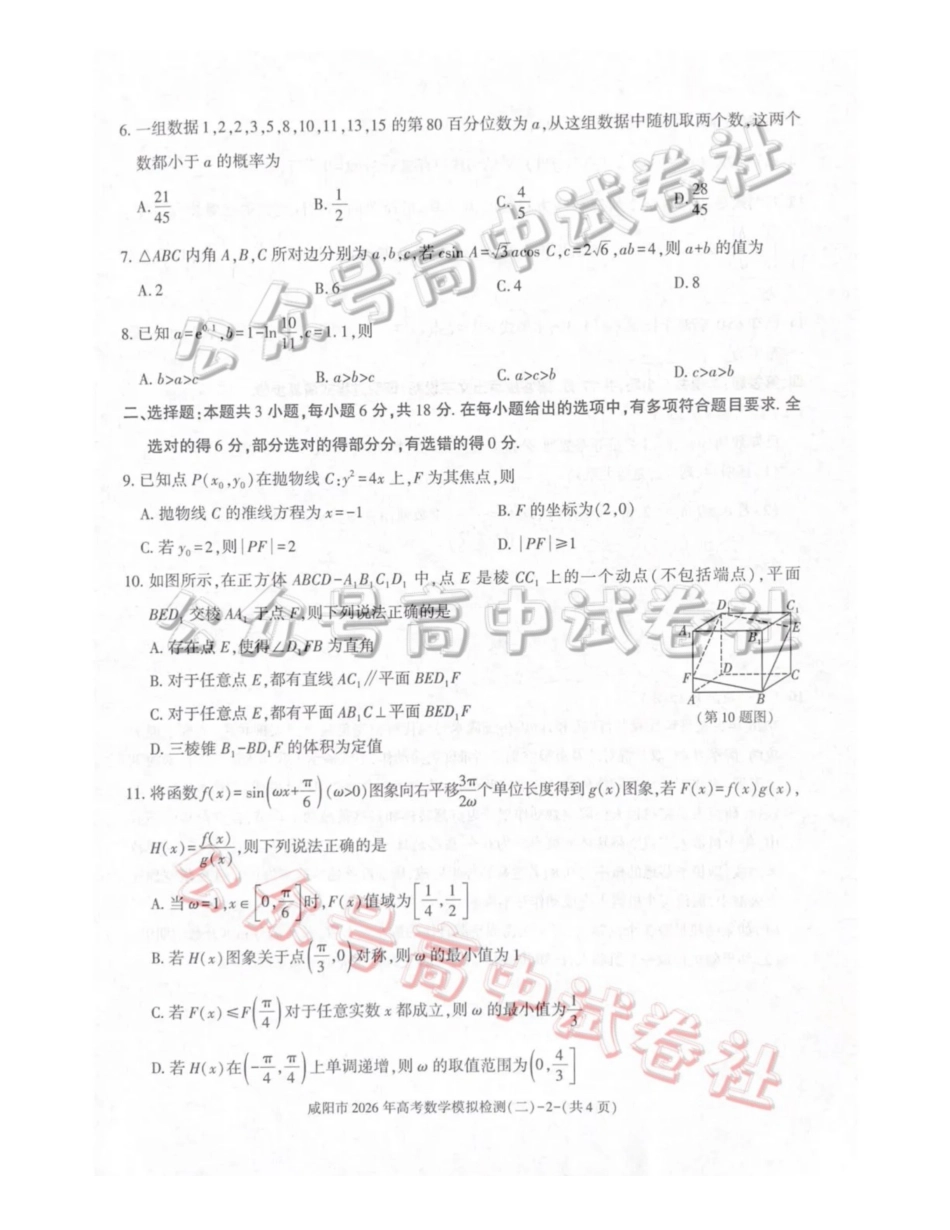 6. 一组数据1,2,2,3,5,8,10,11,13,15的第80百分位数为a,从这组数据中随机取两个数,这两个
数都小于a的概率为
A. 21/45 B. 1/2 C. 4/5 D. 28/45
7. △ABC内角A,B,C所对边分别为a,b,c,若csin A=√3acos C,c=2√6,ab=4,则a+b的值为
A. 2 B. 6 C. 4 D. 8
8. 已知a=e^0.1,b=1-ln 10/11,c=1.1,则
A. b>a>c B. a>b>c C. a>c>b D. c>a>b
二、选择题:本题共3小题,每小题6分,共18分.在每小题给出的选项中,有多项符合题目要求.全
选对的得6分,部分选对的得部分分,有选错的得0分.
9. 已知点P(x₀,y₀)在抛物线C:y²=4x上,F为其焦点,则
A. 抛物线C的准线方程为x=-1 B. F的坐标为(2,0)
C. 若y₀=2,则|PF|=2 D. |PF|≥1
10. 如图所示,在正方体ABCD-A₁B₁C₁D₁中,点E是棱CC₁上的一个动点(不包括端点),平面
BED₁交棱AA₁于点F,则下列说法正确的是
A. 存在点E,使得∠D₁FB为直角
B. 对于任意点E,都有直线AC₁∥平面BED₁F
C. 对于任意点E,都有平面AB₁C⊥平面BED₁F
D. 三棱锥B₁-BD₁F的体积为定值
D₁ C₁
A₁ B₁ E
D C
F
A B
(第10题图)
11. 将函数f(x)=sin(ωx+π/6)(ω>0)图象向右平移3π/2ω个单位长度得到g(x)图象,若F(x)=f(x)g(x),
H(x)=f(x)/g(x),则下列说法正确的是
A. 当ω=1,x∈[0,π/6]时,F(x)值域为[1/4,1/2]
B. 若H(x)图象关于点(π/3,0)对称,则ω的最小值为1
C. 若F(x)≤F(π/4)对于任意实数x都成立,则ω的最小值为1/3
D. 若H(x)在(-π/4,π/4)上单调递增,则ω的取值范围为(0,4/3]
咸阳市2026年高考数学模拟检测(二)-2-(共4页)
公众号高中试卷社
公众号高中试卷社
公众号高中试卷社